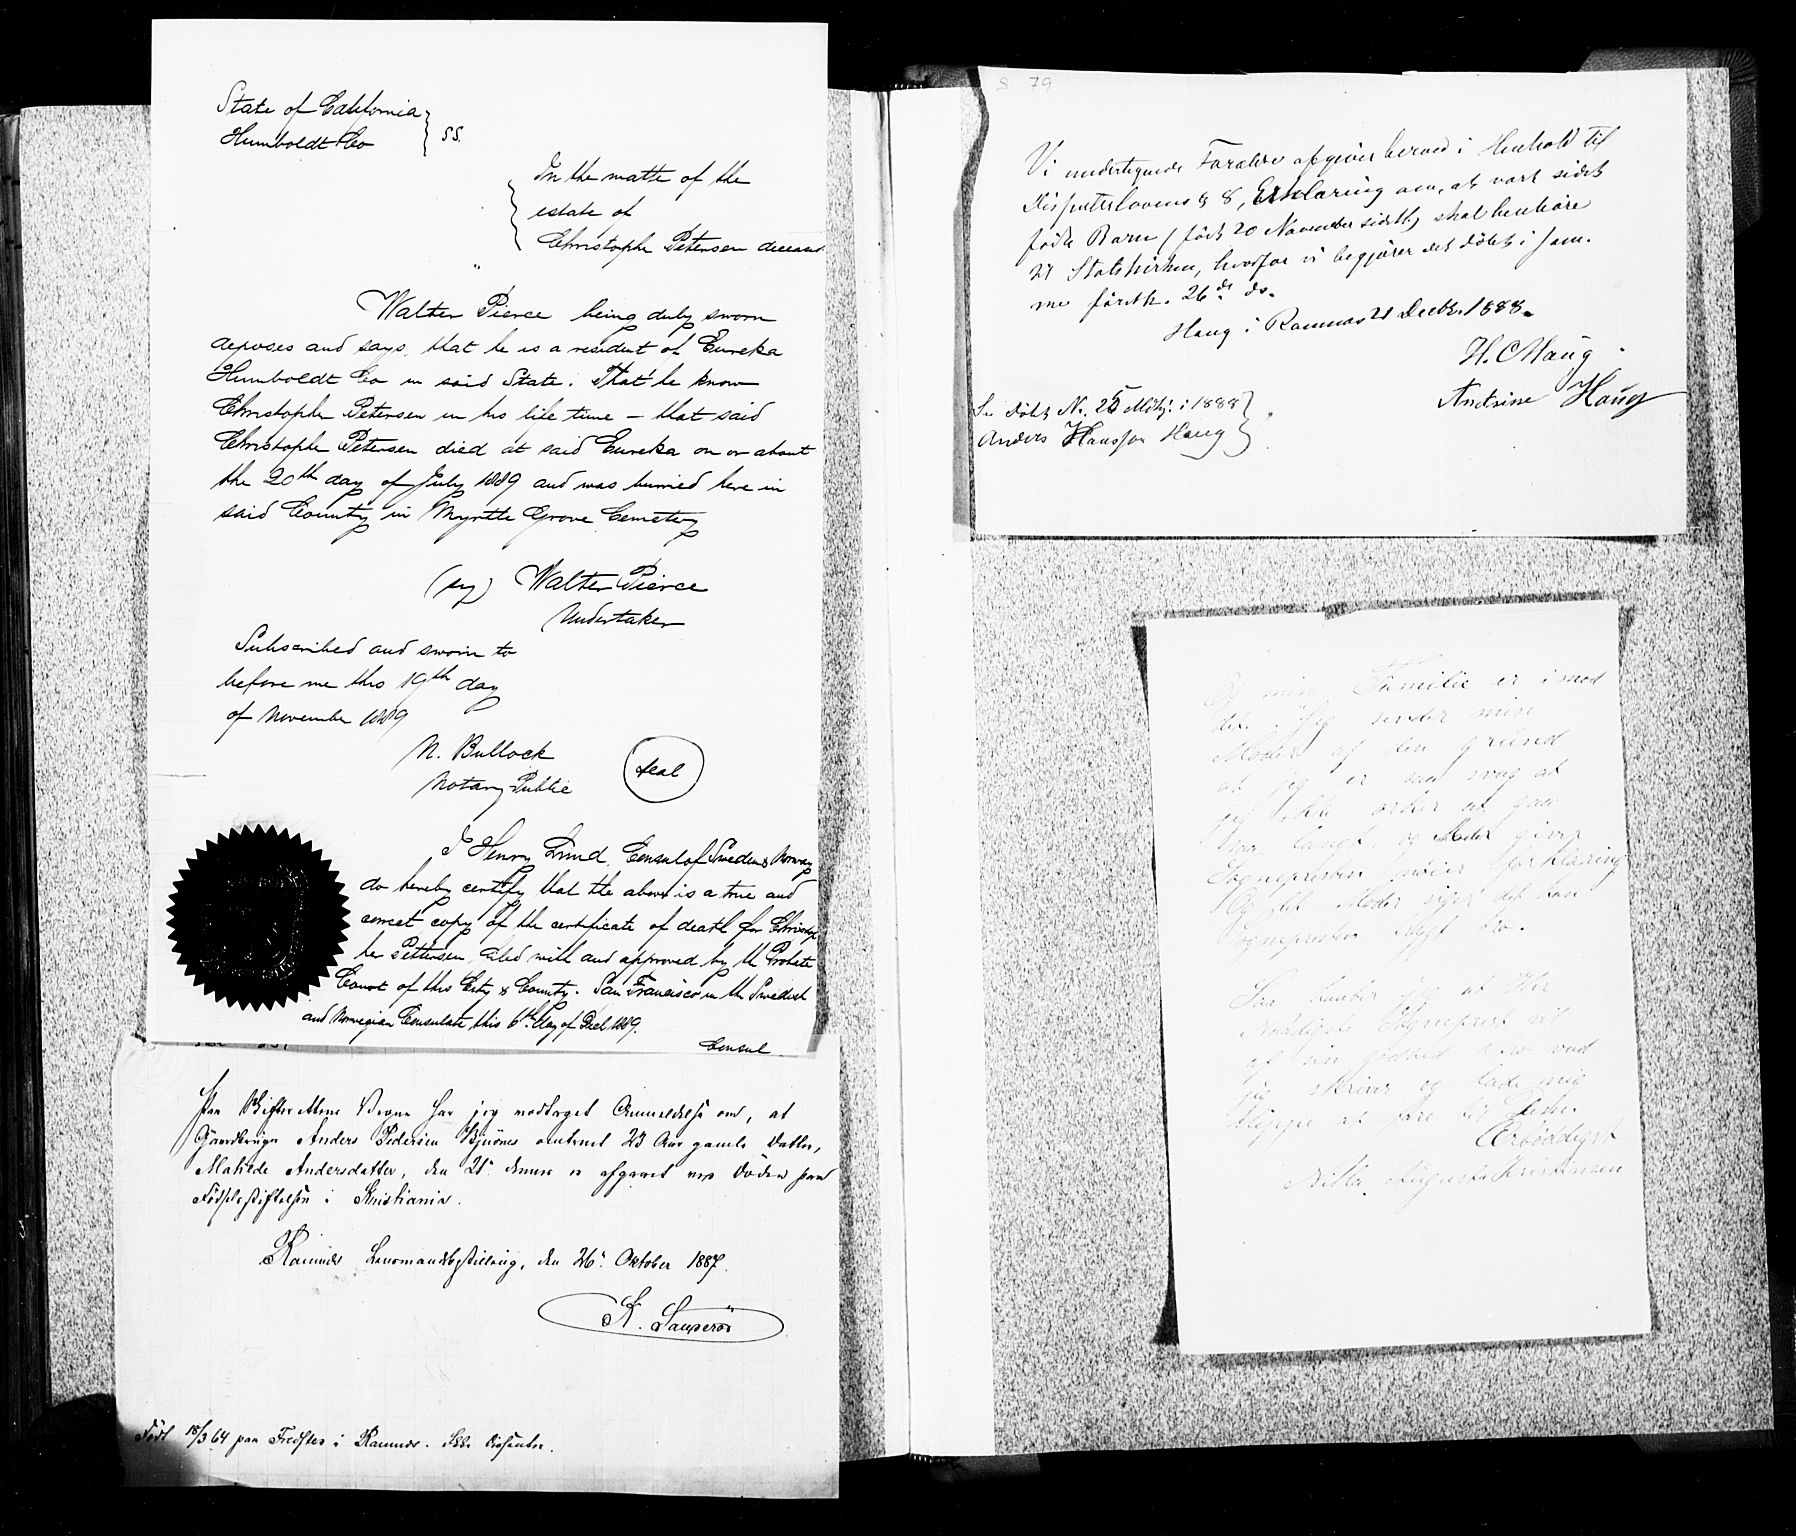 State of California
Humboldt Co } S.S.
In the matte of the
estate of
Christophe Petersen deceased
Walter Pierce being duly sworn
deposes and says, that he is a resident of Eureka
Humboldt Co in said State. That he know
Christophe Petersen in his life time – that said
Christophe Petersen died at said Eureka on or about
the 20th day of July 1889 and was burried here in
said County in Myrtle Grove Cemetery
(sg) Walter Pierce
Undertaker
Subscribed and sworn to
before me this 19th day
of November 1889
N. Bullock
Notary Public
Seal
I Henry Lund, Consul of Sweden & Norway
do hereby certify that the above is a true and
correct copy of the certificate of death for Christop
he Pettersen, filed with and approved by the Probate
Court of this City & County. San Francisco in the Swedish
and Norwegian Consulate this 6th day of Decl 1889.
Consul
Paa Skifterettens Vegne har jeg modtaget Anmeldelse om, at
Gaardbruger Anders Pedersen omtrent 23 Aar gamle Datter,
Matilde Andersdatter, den 21. dennes er afgaaet ved Døden paa
Fødselsstiftelsen i Kristiania.
Ramnes Lensmandsbestilling, den 26. Oktober 1887.
K.
Født 18/3 64 paa i Ramnes.
S 79
Vi undertegnede Forældre afgiver herved i Henhold til
Dissenterlovens § 8, Erklæring om, at vort sidst
fødte Barn (født 20 November sidstl.) skal henhøre
til Statskirken, hvorfor vi begjærer det døbt i sam-
me førstk. 26de ds.
Haug i Ramnes 21 Decbr. 1888.
H. C Haug
Andrine Haug
Se døbte No. 25 Mdkj. i 1888
Anders Hanssøn Haug
Og min Familie er imod
det. Jeg sender min
Moder af den grund
at jeg er saa svag at
jeg ikke orker at gaa
saa langt, og Moder giver
Sognepresten nøiere forklaring
Og det Moder siger det kan
Sognepresten trygt tro.
Saa haaber jeg at Hr
Sogneprest vil
af sin godhed tro vad
jeg skriver og lade mig
slippe at føre
Ærbødigst
Augusta Kristensen